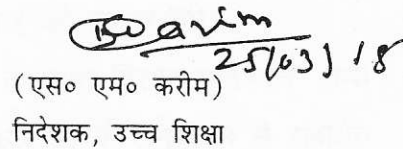 25/03/18
(एस० एम० करीम)
निदेशक, उच्च शिक्षा